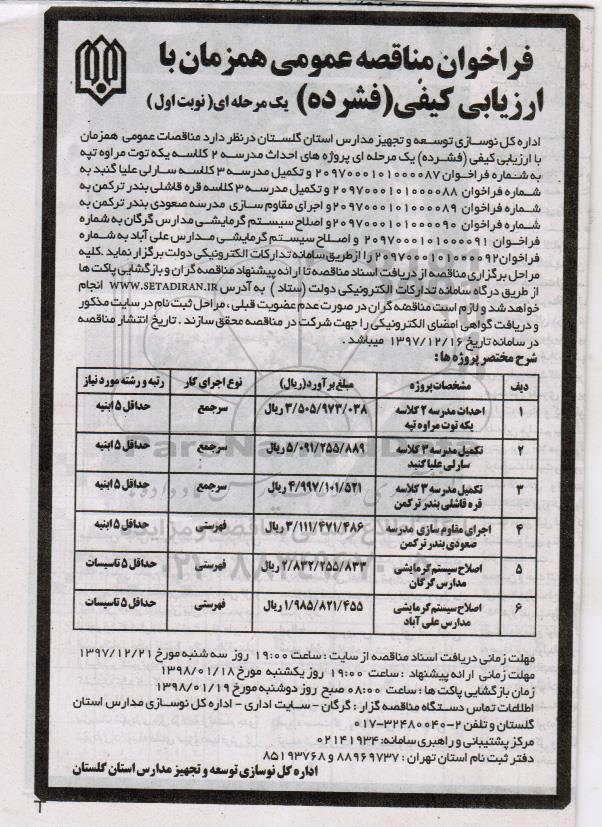 فراخوان مناقصه عمومی همزمان با
ارزیابی کیفی(فشرده) یک مرحله ای(نوبت اول)
اداره کل نوسازی توسعه و تجهیز مدارس استان گلستان درنظر دارد مناقصات عمومی همزمان
با ارزیابی کیفی (فشرده) یک مرحله ای پروژه های احداث مدرسه ۲ کلاسه یکه توت مراوه تپه
به شماره فراخوان ۲۰۹۷۰۰۰۱۰۱۰۰۰۰۸۷ و تکمیل مدرسه ۳ کلاسه سارلی علیا گنبد به
شماره فراخوان ۲۰۹۷۰۰۰۱۰۱۰۰۰۰۸۸ و تکمیل مدرسه ۳ کلاسه قره قاشلی بندر ترکمن به
شماره فراخوان ۲۰۹۷۰۰۰۱۰۱۰۰۰۰۸۹ و اجرای مقاوم سازی مدرسه صعودی بندر ترکمن به
شماره فراخوان ۲۰۹۷۰۰۰۱۰۱۰۰۰۰۹۰ و اصلاح سیستم گرمایشی مدارس گرگان به شماره
فراخوان ۲۰۹۷۰۰۰۱۰۱۰۰۰۰۹۱ و اصلاح سیستم گرمایشی مدارس علی آباد به شماره
فراخوان ۲۰۹۷۰۰۰۱۰۱۰۰۰۰۹۲ را ازطریق سامانه تدارکات الکترونیکی دولت برگزار نماید .کلیه
مراحل برگزاری مناقصه از دریافت اسناد مناقصه تا ارائه پیشنهاد مناقصه گران و بازگشایی پاکت ها
از طریق درگاه سامانه تدارکات الکترونیکی دولت (ستاد ) به آدرس WWW.SETADIRAN.IR انجام
خواهد شد و لازم است مناقصه گران در صورت عدم عضویت قبلی ، مراحل ثبت نام در سایت مذکور
و دریافت گواهی امضای الکترونیکی را جهت شرکت در مناقصه محقق سازند . تاریخ انتشار مناقصه
در سامانه تاریخ ۱۳۹۷/۱۲/۱۶ میباشد .
شرح مختصر پروژه ها:
دیف مشخصات پروژه مبلغ برآورد(ریال) نوع اجرای کار رتبه و رشته مورد نیاز
۱ احداث مدرسه ۲ کلاسه یکه توت مراوه تپه ۳/۵۰۵/۹۷۳/۰۳۸ ریال سرجمع حداقل ۵ ابنیه
۲ تکمیل مدرسه ۳ کلاسه سارلی علیا گنبد ۵/۰۹۱/۲۵۵/۸۸۹ ریال سرجمع حداقل ۵ ابنیه
۳ تکمیل مدرسه ۳ کلاسه قره قاشلی بندر ترکمن ۴/۹۹۷/۱۰۱/۵۲۱ ریال سرجمع حداقل ۵ ابنیه
۴ اجرای مقاوم سازی مدرسه صعودی بندر ترکمن ۳/۱۱۱/۴۷۱/۴۸۶ ریال فهرستی حداقل ۵ ابنیه
۵ اصلاح سیستم گرمایشی مدارس گرگان ۲/۸۳۲/۲۵۵/۸۳۳ ریال فهرستی حداقل ۵ تاسیسات
۶ اصلاح سیستم گرمایشی مدارس علی آباد ۱/۹۸۵/۸۲۱/۴۵۵ ریال فهرستی حداقل ۵ تاسیسات
مهلت زمانی دریافت اسناد مناقصه از سایت : ساعت ۱۹:۰۰ روز سه شنبه مورخ ۱۳۹۷/۱۲/۲۱
مهلت زمانی ارائه پیشنهاد : ساعت ۱۹:۰۰ روز یکشنبه مورخ ۱۳۹۸/۰۱/۱۸
زمان بازگشایی پاکت ها : ساعت ۰۸:۰۰ صبح روز دوشنبه مورخ ۱۳۹۸/۰۱/۱۹
اطلاعات تماس دستگاه مناقصه گزار : گرگان - سایت اداری - اداره کل نوسازی مدارس استان
گلستان و تلفن ۲-۳۲۴۸۰۰۴۰-۰۱۷
مرکز پشتیبانی و راهبری سامانه: ۰۲۱۴۱۹۳۴
دفتر ثبت نام استان تهران : ۸۸۹۶۹۷۳۷ و ۸۵۱۹۳۷۶۸
اداره کل نوسازی توسعه و تجهیز مدارس استان گلستان